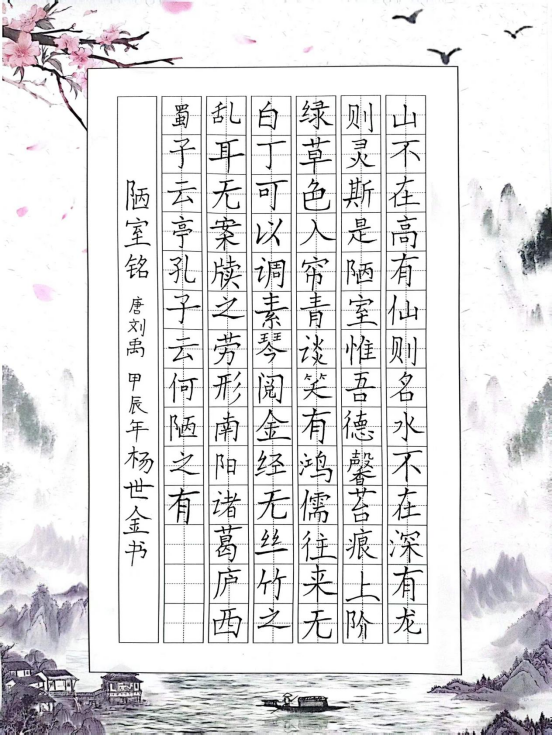 山不在高有仙则名水不在深有龙
则灵斯是陋室惟吾德馨苔痕上阶
绿草色入帘青谈笑有鸿儒往来无
白丁可以调素琴阅金经无丝竹之
乱耳无案牍之劳形南阳诸葛庐西
蜀子云亭孔子云何陋之有
陋室铭 唐刘禹 甲辰年杨世金书